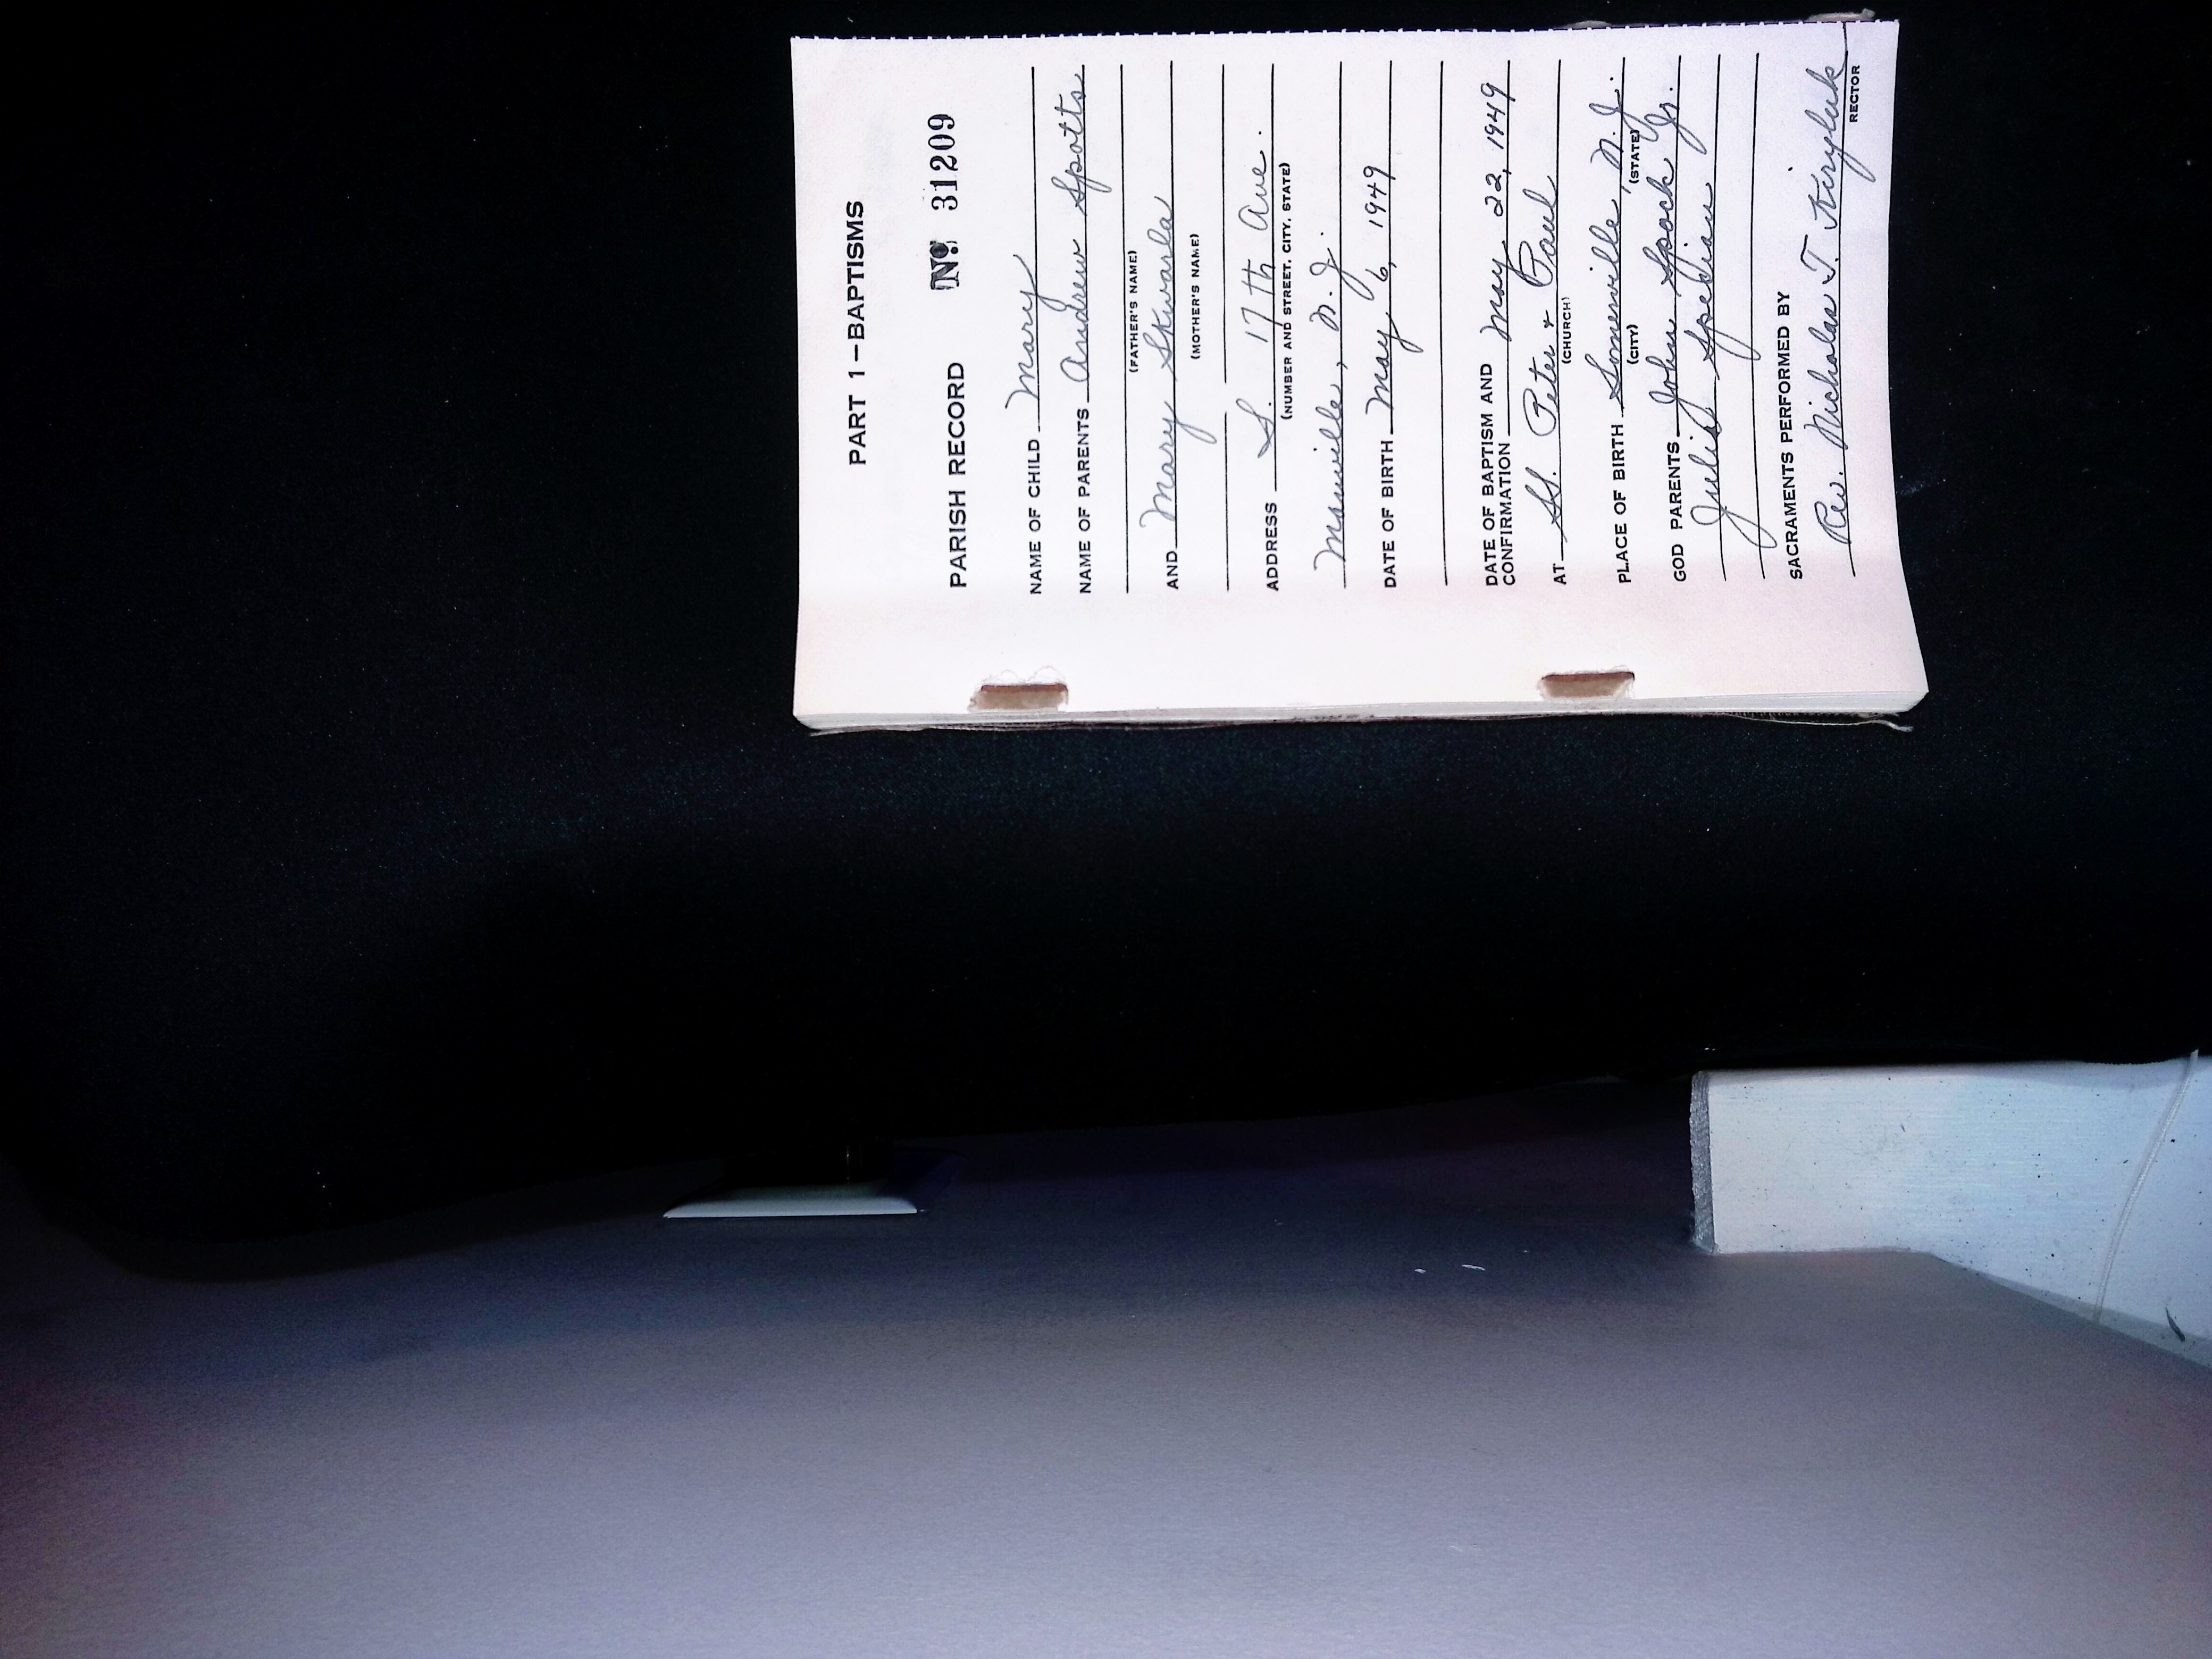 PART 1—BAPTISMS
PARISH RECORD № 31209
NAME OF CHILD Mary
NAME OF PARENTS Andrew Spotts
(FATHER'S NAME)
AND Mary Skwarla
(MOTHER'S NAME)
ADDRESS S. 17th Ave.
(NUMBER AND STREET, CITY, STATE)
Manville, N.J.
DATE OF BIRTH May 6, 1949
DATE OF BAPTISM AND
CONFIRMATION May 22, 1949
AT SS. Peter + Paul
(CHURCH)
PLACE OF BIRTH Somerville, N.J.
(CITY) (STATE)
GOD PARENTS John Spock Jr.
Julia Specian
SACRAMENTS PERFORMED BY
Rev. Nicholas T. Kiryluk
RECTOR